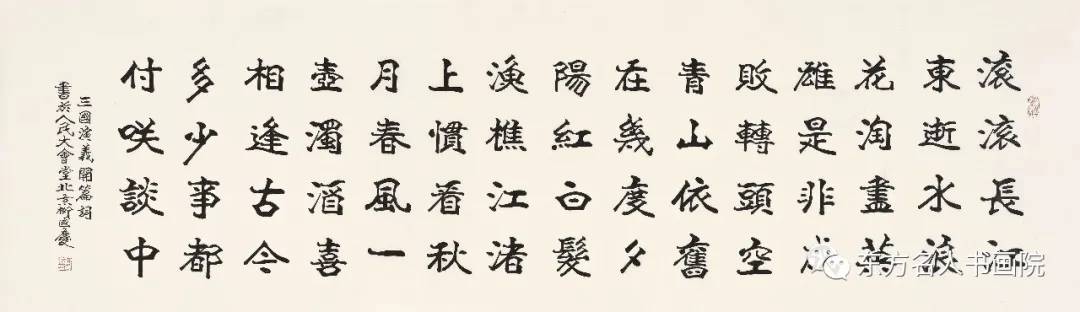 滚滚長江
東逝水浪
花淘盡英
雄是非成
敗轉頭空
青山依舊
在幾度夕
陽紅白髮
漁樵江渚
上慣看秋
月春風一
壺濁酒喜
相逢古今
多少事都
付咲談中
三國演義開篇詞
書於人民大會堂北京柳國慶
东方名人书画院